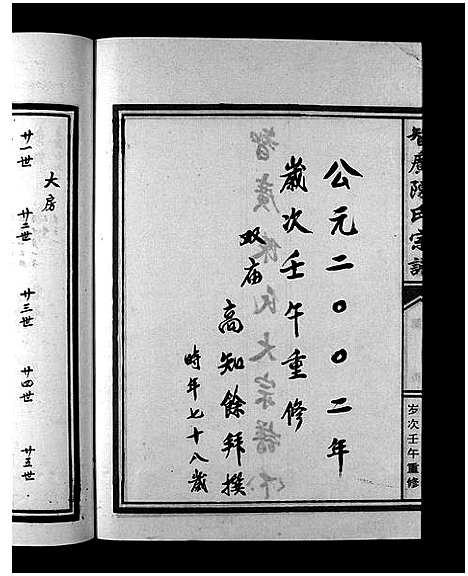 智廣陳氏宗譜
岁次壬午重修
公元二〇〇二年
歲次壬午重修
双庙 高知餘拜撰
時年七十八歲
大房
廿一世 廿二世 廿三世 廿四世 廿五世